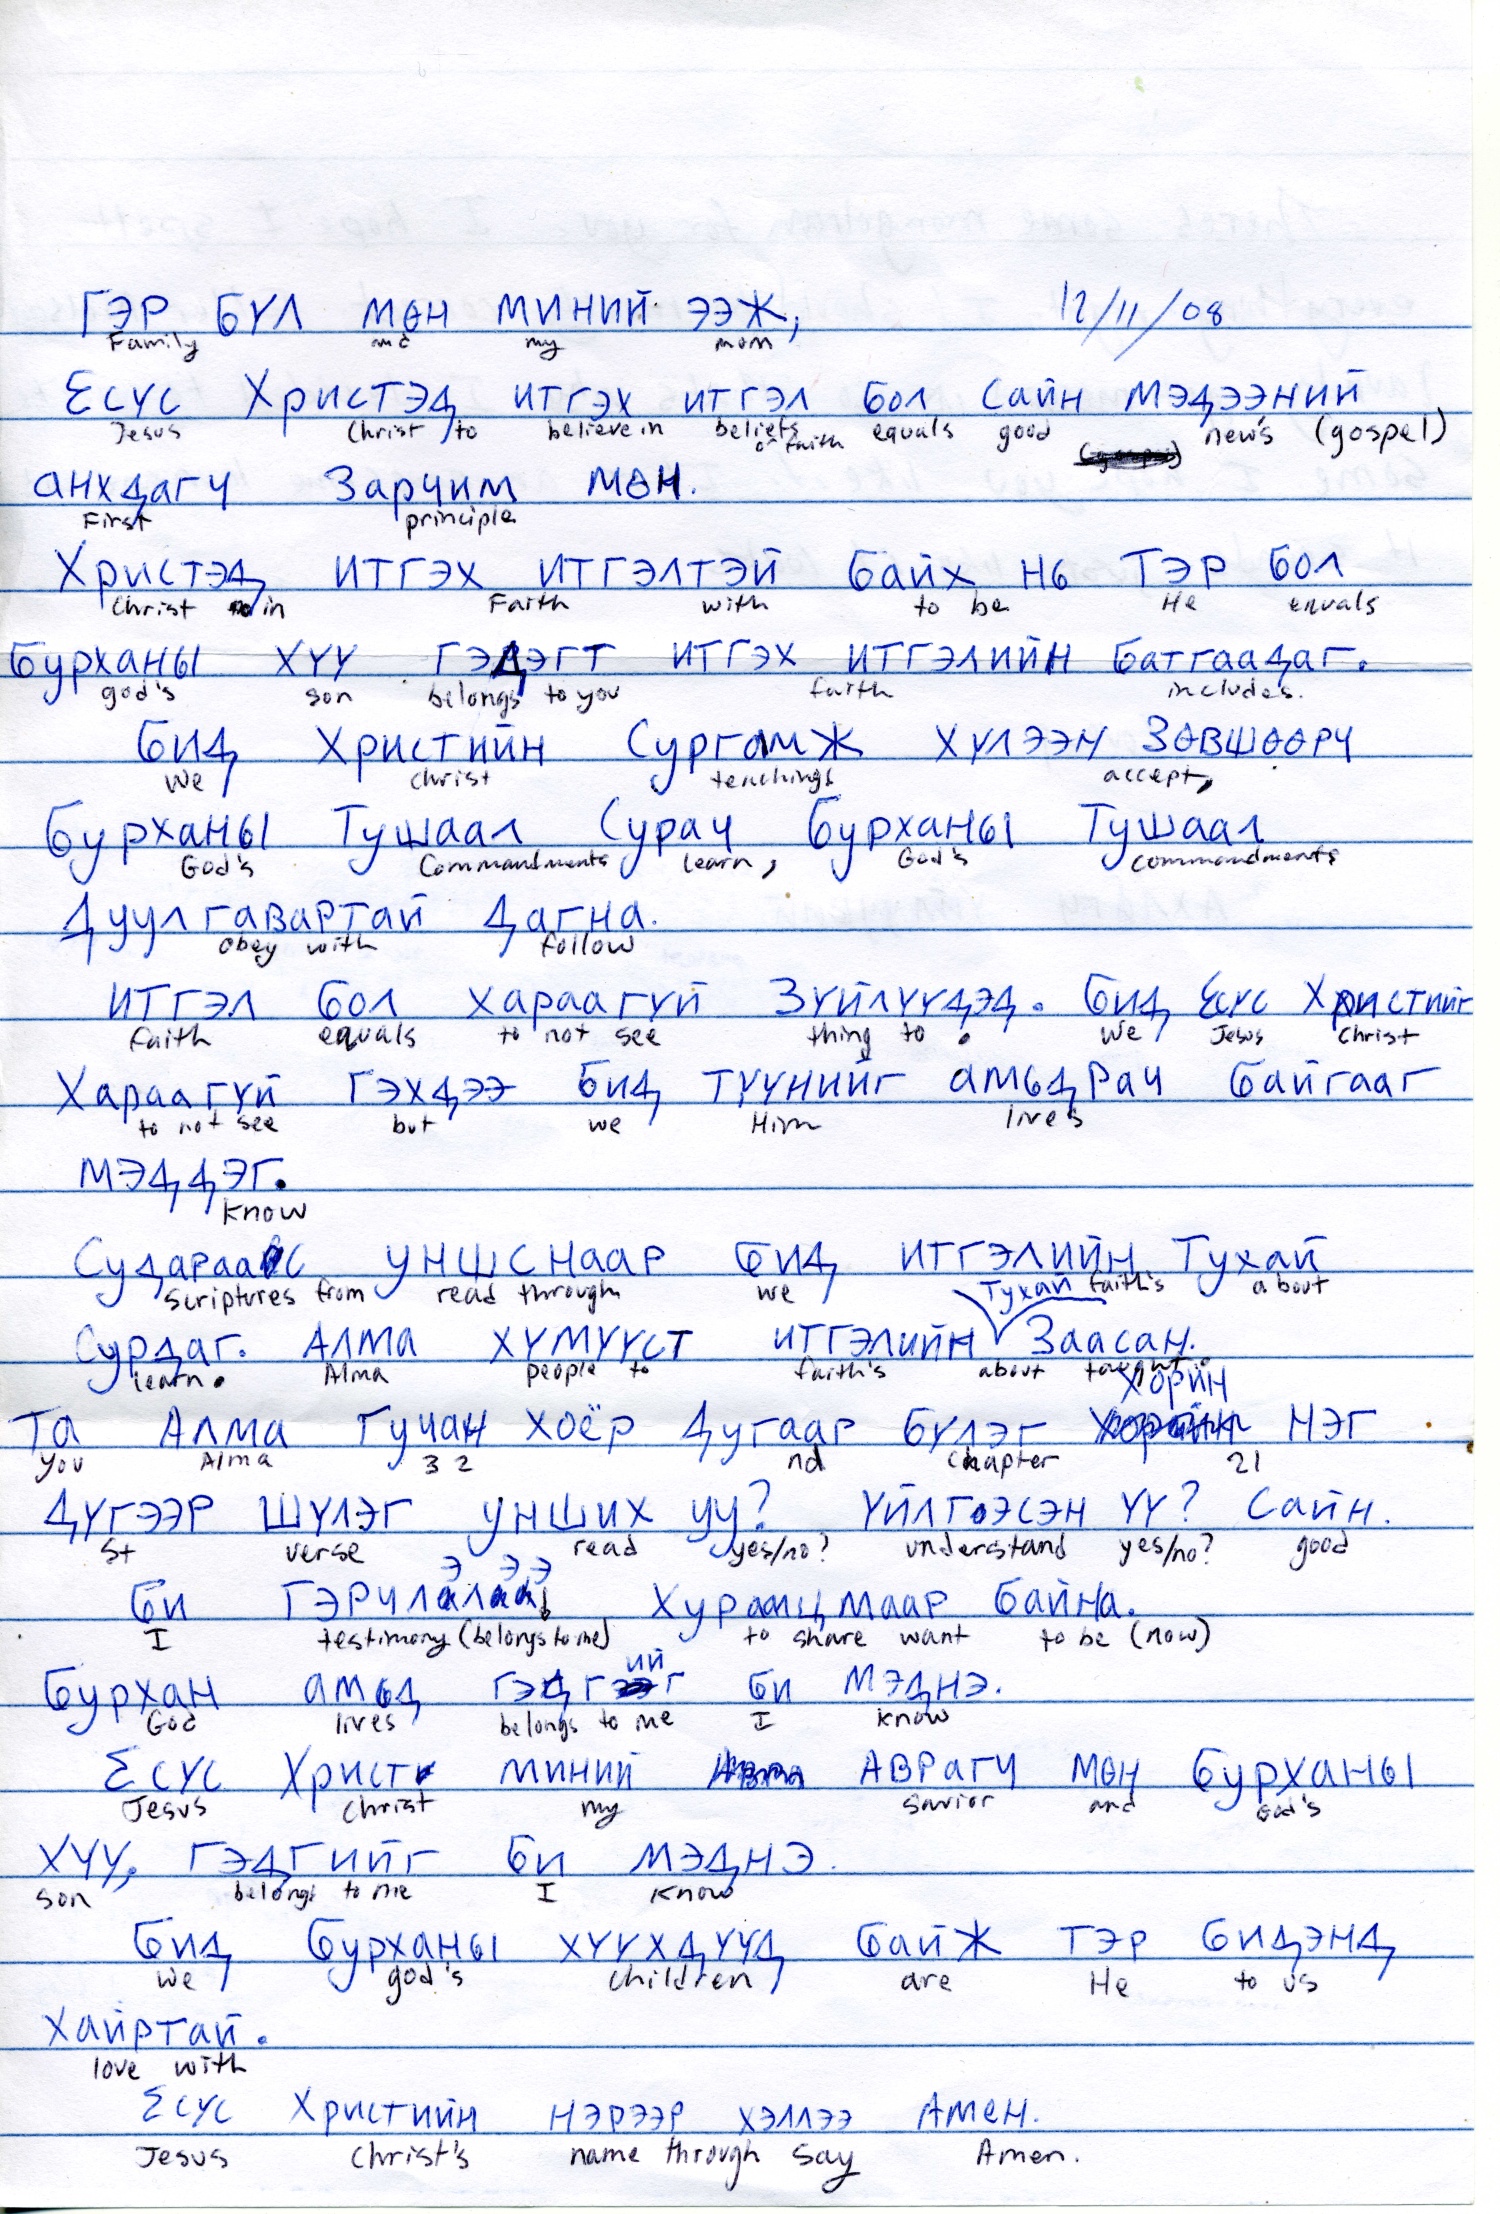 ГЭР БҮЛ МӨН МИНИЙ ЭЭЖ, 12/11/08
Family and my mom
Есүс Христэд итгэх итгэл бол Сайн Мэдээний
Jesus Christ to believe in beliefs of faith equals good news (gospel)
анхдагч Зарчим мөн.
First principle
Христэд итгэх итгэлтэй байх нь Тэр бол
Christ in Faith with to be He equals
Бурханы хүү гэдэгт итгэх итгэлийн батгаадаг.
god's son belongs to you faith includes.
Бид Христийн Сургамж хүлээн Зөвшөөрч
We Christ teachings accept,
Бурханы Тушаал Сурач Бурханы Тушаал
God's Commandments learn, God's commandments
Дуулгавартай дагна.
obey with follow
итгэл бол хараагүй Зүйлүүдэд. Бид Есүс Христийг
Faith equals to not see thing to. We Jesus Christ
Хараагүй гэхдээ бид түүнийг амьдрач байгааг
to not see but we Him lives
мэддэг.
know
Судараас уншснаар бид итгэлийн Тухай
Scriptures from read through we faith's about
Сурдаг. Алма хүмүүст итгэлийн Тухай Заасан.
learn. Alma people to faith's about taught.
Та Алма Гучан хоёр Дугаар бүлэг Хорин нэг
you Alma 32 nd chapter 21
Дүгээр шүлэг унших уу? үйлгоэсэн үү? Сайн.
st verse read yes/no? understand yes/no? good
Би Гэрчлэлээ хураацмаар байна.
I testimony (belongs to me) to share want to be (now)
Бурхан амьд гэдгийг би мэднэ.
God lives belongs to me I know
Есүс Христ миний Аврагч мөн Бурханы
Jesus Christ my Savior and God's
хүү, гэдгийг би мэднэ.
son belongs to me I know
Бид Бурханы хүүхдүүд байж Тэр бидэнд
we god's children are He to us
хайртай.
love with
Есүс Христийн нэрээр хэллээ Амен.
Jesus Christ's name through say Amen.